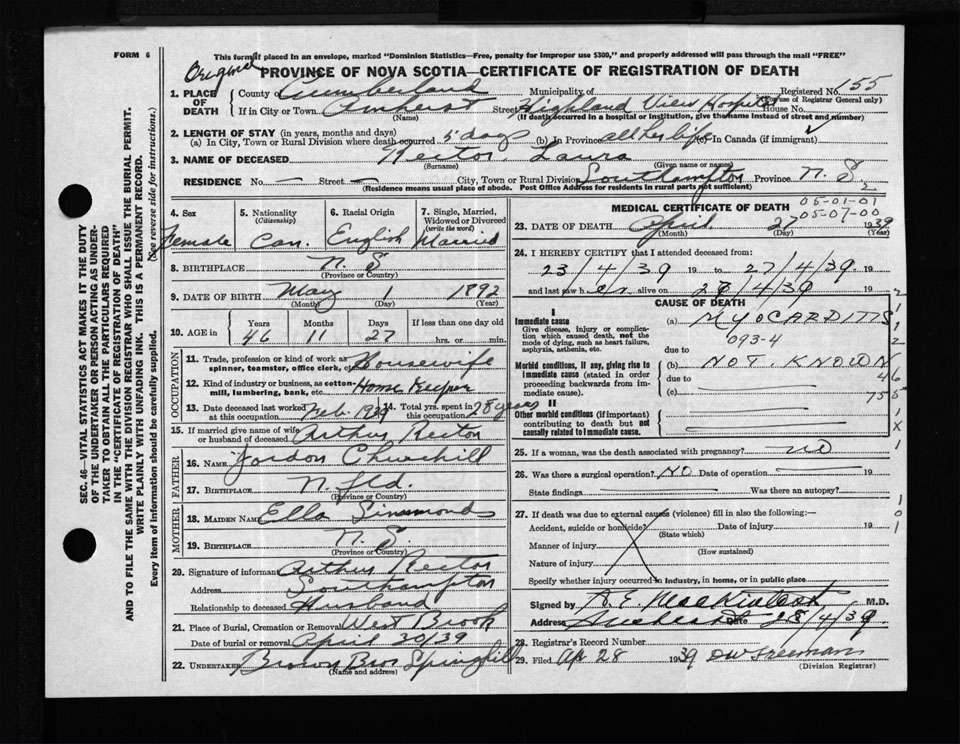 FORM 6
This form if placed in an envelope, marked "Dominion Statistics—Free, penalty for improper use $300," and properly addressed will pass through the mail "FREE"
Original
PROVINCE OF NOVA SCOTIA—CERTIFICATE OF REGISTRATION OF DEATH
1. PLACE OF DEATH County of Cumberland Municipality of Registered No. 155
(For use of Registrar General only)
If in City or Town Amherst Street Highland View Hospital House No.
(Name) (If death occurred in a hospital or institution, give the name instead of street and number)
2. LENGTH OF STAY (in years, months and days)
(a) In City, Town or Rural Division where death occurred 5 days (b) In Province all her life (c) In Canada (if immigrant)
3. NAME OF DECEASED Rector Laura
(Surname) (Given name or names)
RESIDENCE No. — Street — City, Town or Rural Division Southampton Province N. S.
(Residence means usual place of abode. Post Office Address for residents in rural parts not sufficient)
4. Sex 5. Nationality (Citizenship) 6. Racial Origin 7. Single, Married, Widowed or Divorced (write the word)
Female Can. English Married
8. BIRTHPLACE N. S
(Province or Country)
9. DATE OF BIRTH May 1 1892
(Month) (Day) (Year)
10. AGE in Years Months Days If less than one day old
46 11 27 hrs. or min.
OCCUPATION
11. Trade, profession or kind of work as spinner, teamster, office clerk, etc. Housewife
12. Kind of industry or business, as cotton-mill, lumbering, bank, etc. Home Keeper
13. Date deceased last worked at this occupation Feb. 1939 14. Total yrs. spent in this occupation 28 years
15. If married give name of wife or husband of deceased Arthur Rector
FATHER
16. NAME Gordon Churchill
17. BIRTHPLACE N. fld.
(Province or Country)
MOTHER
18. MAIDEN NAME Ella Simmonds
19. BIRTHPLACE N. S.
(Province or Country)
20. Signature of informant Arthur Rector
Address Southampton
Relationship to deceased Husband
21. Place of Burial, Cremation or Removal West Brook
Date of burial or removal April 30/39
22. UNDERTAKER Brown Bros Springhill
(Name and address)
MEDICAL CERTIFICATE OF DEATH
05-01-01
05-07-00
23. DATE OF DEATH April 27 1939
(Month) (Day) (Year)
24. I HEREBY CERTIFY that I attended deceased from
23/4/39 19 to 27/4/39 19
and last saw her alive on 27/4/39 19
CAUSE OF DEATH
I
Immediate cause (a) MYOCARDITIS
Give disease, injury or complication which caused death, not the mode of dying, such as heart failure, asphyxia, asthenia, etc.
093-4
due to
Morbid conditions, if any, giving rise to immediate cause (stated in order proceeding backwards from immediate cause). (b) NOT KNOWN
due to
(c)
II
Other morbid conditions (if important) contributing to death but not causally related to immediate cause.
25. If a woman, was the death associated with pregnancy? NO
26. Was there a surgical operation? NO Date of operation 19
State findings Was there an autopsy?
27. If death was due to external causes (violence) fill in also the following:—
Accident, suicide or homicide? Date of injury 19
(State which)
Manner of injury
(How sustained)
Nature of injury
Specify whether injury occurred in industry, in home, or in public place
Signed by M.D.
Address Amherst Date 28/4/39
28. Registrar's Record Number
29. Filed Ap 28 1939 D W Freeman
(Division Registrar)
SEC. 46—VITAL STATISTICS ACT MAKES IT THE DUTY
OF THE UNDERTAKER OR PERSON ACTING AS UNDER-
TAKER TO OBTAIN ALL THE PARTICULARS REQUIRED
IN THE "CERTIFICATE OF REGISTRATION OF DEATH"
AND TO FILE THE SAME WITH THE DIVISION REGISTRAR WHO SHALL ISSUE THE BURIAL PERMIT.
WRITE PLAINLY WITH UNFADING INK. THIS IS A PERMANENT RECORD.
Every item of information should be carefully supplied. (See reverse side for instructions.)